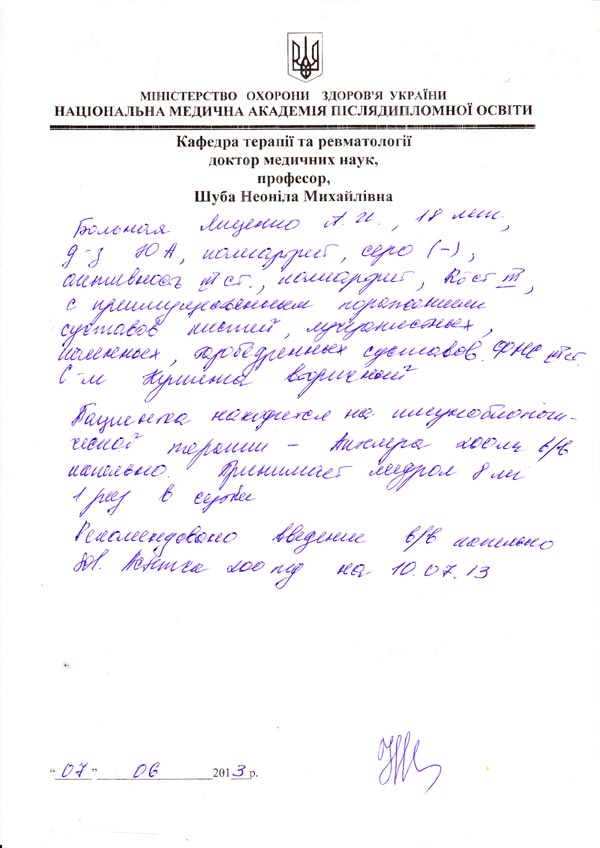 МІНІСТЕРСТВО ОХОРОНИ ЗДОРОВ'Я УКРАЇНИ
НАЦІОНАЛЬНА МЕДИЧНА АКАДЕМІЯ ПІСЛЯДИПЛОМНОЇ ОСВІТИ
Кафедра терапії та ревматології
доктор медичних наук,
професор,
Шуба Неоніла Михайлівна
Больная А. И., 18 лет,
д-з ЮА, полиартрит, серо (-),
активность III ст., полиартрит, Rö ст III,
с преимущественным поражением
суставов кистей, лучезапястных,
коленных, тазобедренных суставов. ФНС III ст.
С-м Кушинга вторичный
Пациентка находится на имунобиологи-
ческой терапии – Актемра 200мг в/в
капельно. Принимает медрол 8 мг
1 раз в сутки
Рекомендовано введение в/в капельно
200 на 10.07.13
“ 07 ” 06 2013 р.